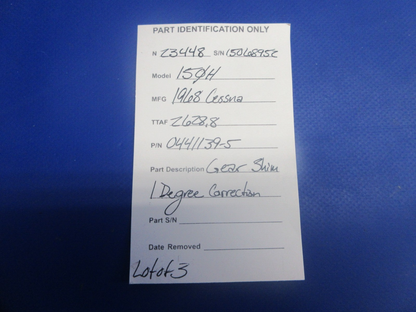 PART IDENTIFICATION ONLY
N 23448 S/N 15068952
Model 150H
MFG 1968 Cessna
TTAF 2628.8
P/N 0441139-5
Part Description Gear Shim
1 Degree Correction
Part S/N
Date Removed
Lot of 3